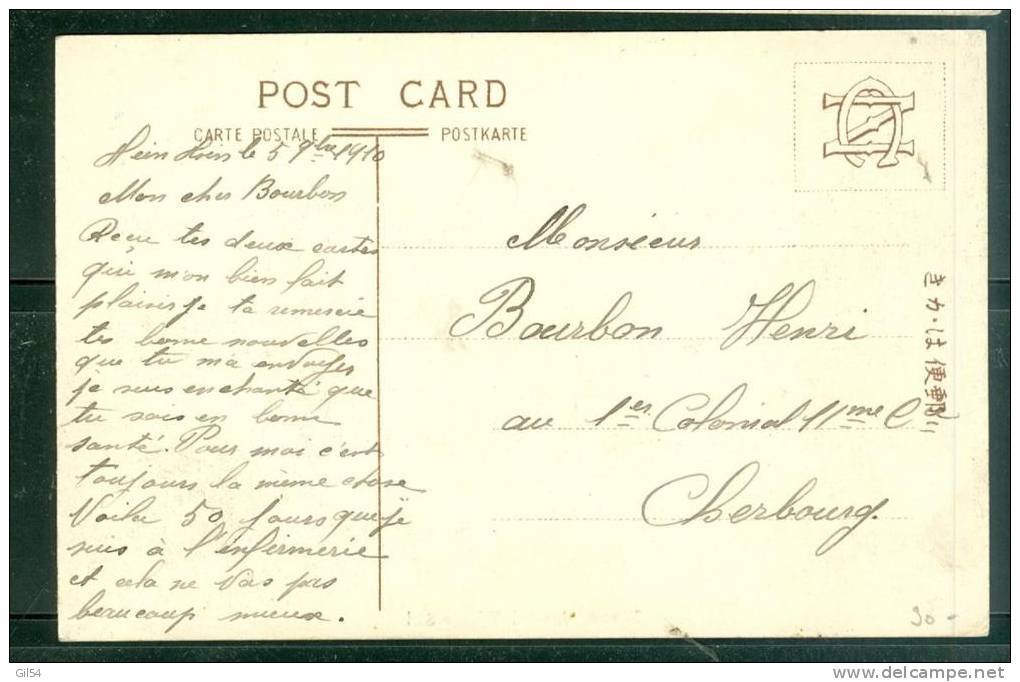 POST CARD
CARTE POSTALE
POSTKARTE
le 5 9bre 1910
Mon cher Bourbon
Recu tes deux cartes
qui m'on bien fait
plaisir je ta remercie
tes bonne nouvelles
que tu ma envoyer
je suis enchanté que
tu sois en bonne
santé. Pour moi c'est
toujours la même chose
Voila 50 jours que je
suis à l'enfirmerie
et cela ne vas pas
beaucoup mieux.
Monsieur
Bourbon Henri
au 1er Colonial 11me Cie
Cherbourg.
きカ·は便郵
30-
Gil54
www.delcampe.net